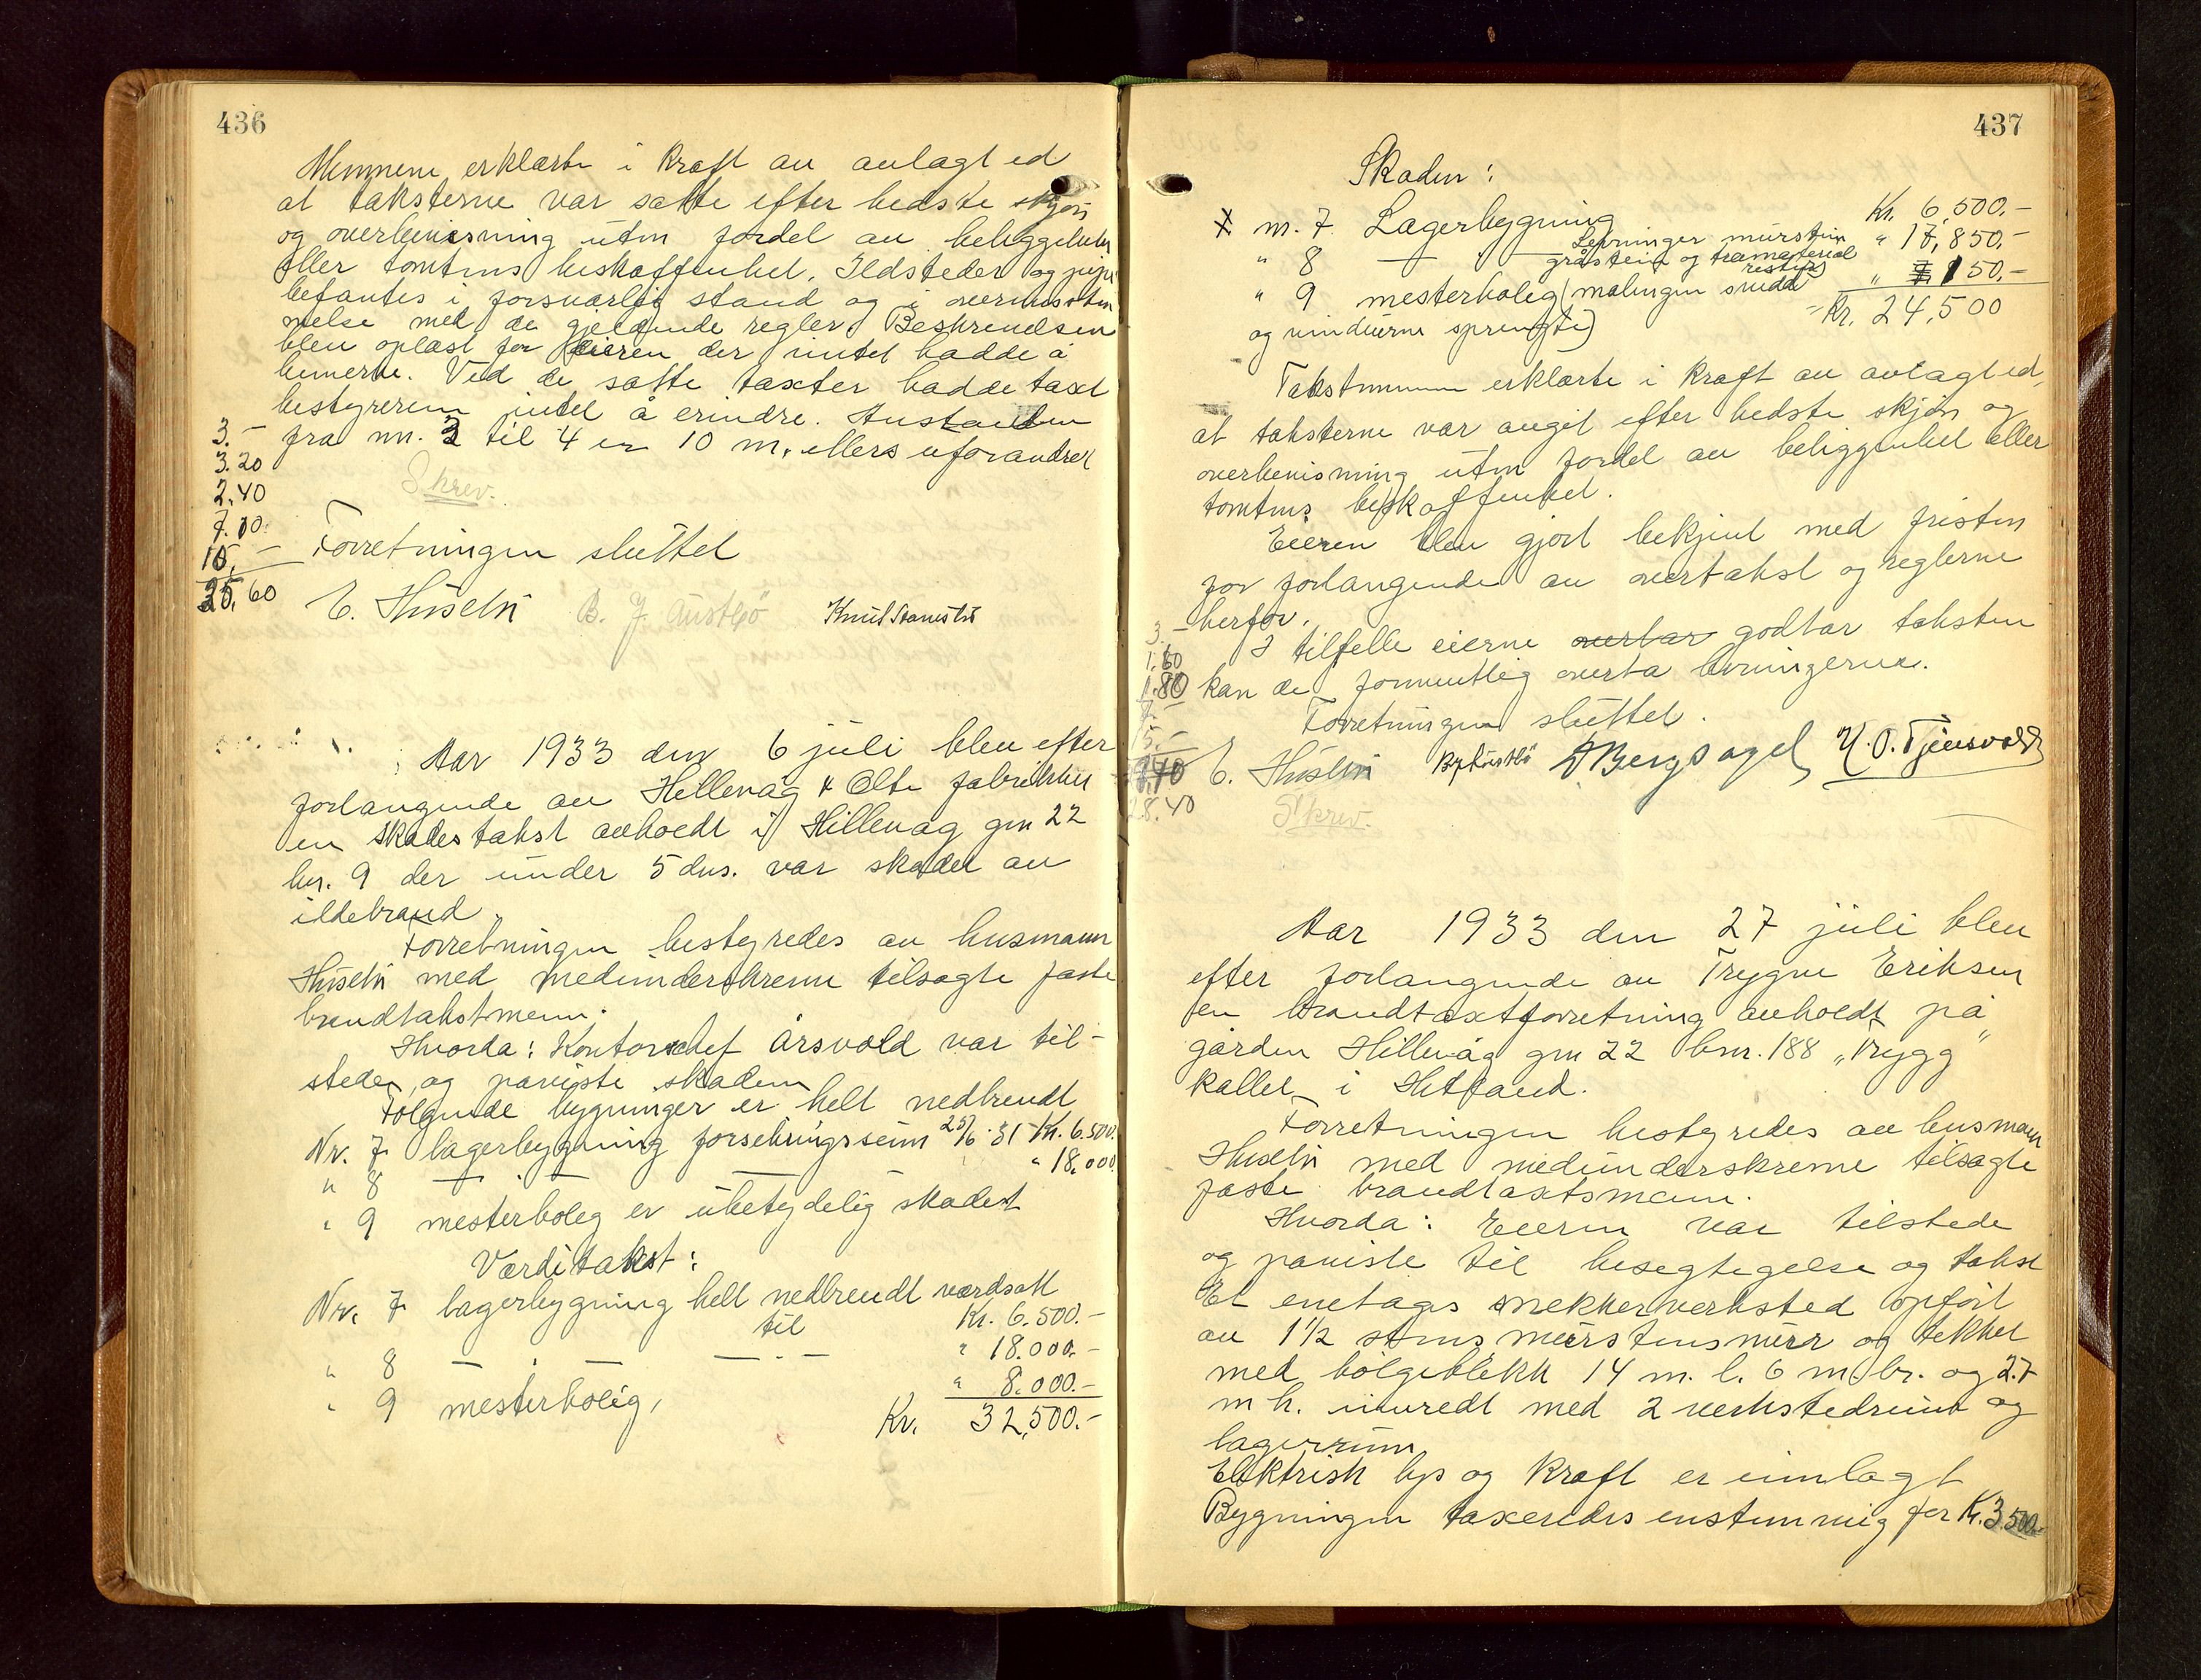 436
Mennene erklærte i kraft av avlagt ed
at taksterne var satte efter bedste skjøn
og overbevisning uten fordel av beliggenheten
eller tomtens beskaffenhet. Ildsteder og piper
befantes i forsvarlig stand og i overensstem
melse med de gjeldende regler. Beskrivelsen
blev oplæst for eieren der intet hadde å
bemerke. Ved de satte taxter hadde taxt
bestyreren intet å erindre. Avstanden
fra nn. 3 til 4 er 10 m. ellers uforandret
3.-
3.20
2.40
7.00
10.-
25.60
Skrev.
Forretningen sluttet
E. Husebø B. J. Austbø
Aar 1933 den 6 juli blev efter
forlangende av Hillevåg & Olte fabrikker
en skadestakst avholdt i Hillevåg gnr 22
bnr. 9 der under 5 ds. var skadet av
ildebrand.
Forretningen bestyredes av lensmann
Husebø med medunderskrevne tilsagte faste
brandtakstmenn.
Hvorda: Kontorchef Årsvold var til-
stede, og påviste skaden
Følgende bygninger er helt nedbrendt
Nr. 7 lagerbygning forsikringssum 25/6 31 Kr. 6.500.
" 8 — . — " 18.000.
" 9 mesterbolig er ubetydelig skadet
Værditakst:
Nr. 7 lagerbygning helt nedbrendt værdsatt
til Kr. 6.500.-
" 8 — . — — . — " 18.000.-
" 9 mesterbolig, " 8.000.-
Kr. 32,500.-
437
Skaden:
X nr. 7. Lagerbygning Kr. 6,500.-
" 8 — " — Levninger murstein " 17,850.-
gråstein og træmaterial
rester
" 9 mesterbolig (malingen svidd " 150.-
og vinduerne sprengte) Kr. 24,500
Takstmennene erklærte i kraft av avlagt ed,
at taksterne var avgit efter bedste skjøn og
overbevisning uten fordel av beliggenhet eller
tomtens beskaffenhet.
Eieren blev gjort bekjent med fristen
for forlangende av overtakst og reglerne
herfor.
I tilfelle eierne overtar godtar taksten
kan de formentlig overta levningerne.
Forretningen sluttet.
3.-
1.60
1.80
7.-
15.-
28.40
E. Husebø B. J. Austbø A Bergsagel
Skrev.
Aar 1933 den 27 juli blev
efter forlangende av Trygve Eriksen
en brandtaxtforretning avholdt på
gården Hillevåg gnr 22 bnr. 188 „Trygg"
kallet i Hetland.
Forretningen bestyredes av lensmann
Husebø med medunderskrevne tilsagte
faste brandtaxtsmenn.
Hvorda: Eieren var tilstede
og påviste til besegtigelse og takst
Et enetages snekkerverksted opført
av 1½ stens murstensmurr og tekket
med bølgeblekk 14 m. l. 6 m. br. og 2.7
m h. innredt med 2 verkstedrum og
lagerrum
Elektrisk lys og kraft er innlagt
Bygningen taxeredes enstemmig for Kr. 3.500.-